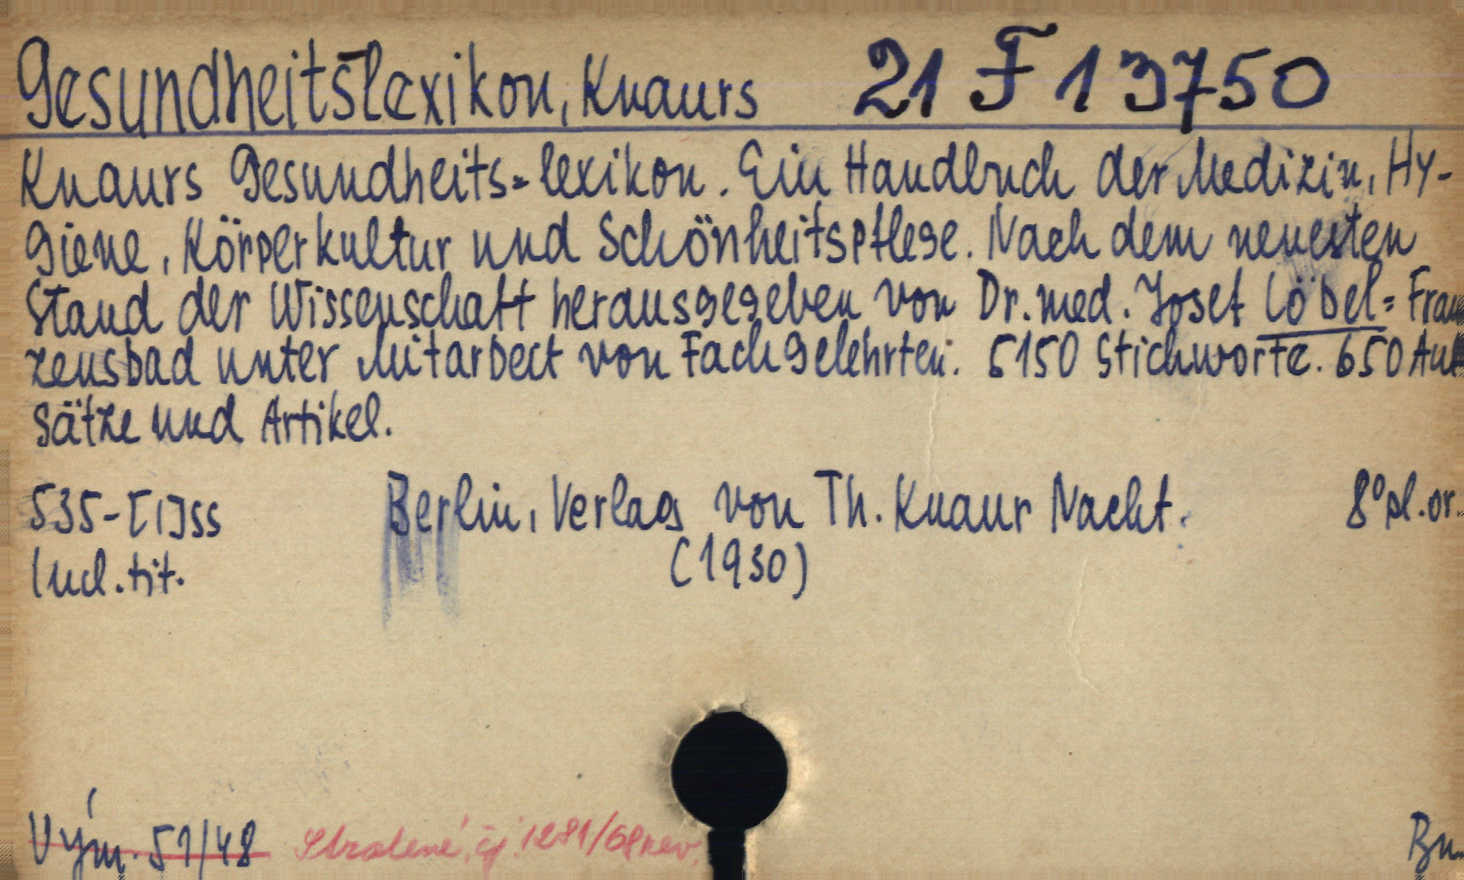 Gesundheitslexikon, Knaurs 21 F 13750
Knaurs Gesundheits=lexikon. Ein Handbuch der Medizin, Hy-
giene, Körperkultur und Schönheitspflege. Nach dem neuesten
Stand der Wissenschaft herausgegeben von Dr. med. Josef Löbel=Fran
zensbad unter Mitarbeit von Fachgelehrten. 5150 Stichworte. 650 Auf
sätze und Artikel.
535-[1]SS Berlin, Verlag von Th. Knaur Nachf. 8° pl. or.
Incl. tit. (1930)
Vým. 51/48 Ztracené, čj. 1281/68 rev. Bn.